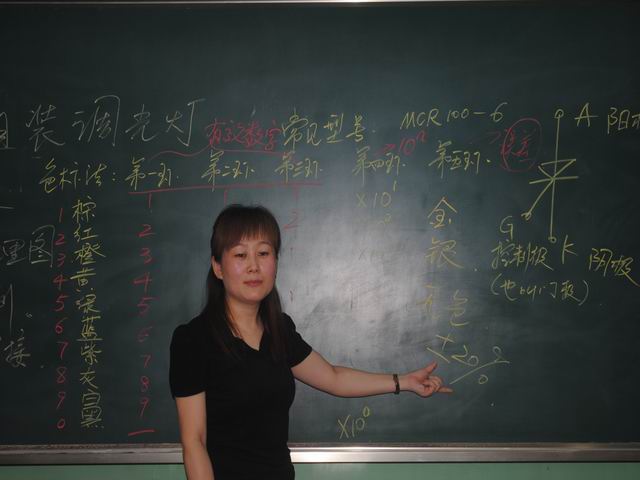 装调光灯
有效数字 常见型号. MCR100-6
A 阳
色标法: 第一环. 第二环. 第三环. 第四环. 第五环. 误差
10ⁿ
1 棕 1
2 红 2
3 橙 3
4 黄 4
5 绿 5
6 蓝 6
7 紫 7
8 灰 8
9 白 9
0 黑
2
×10¹
金
银
无色
±20%
×10⁰
G
控制极 K 阴极
(也叫门极)
图
接